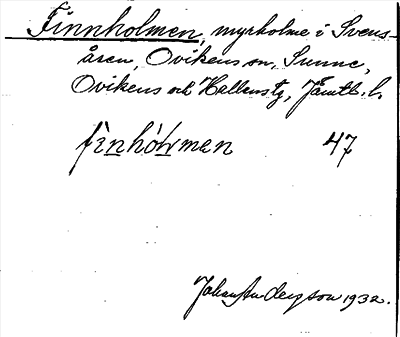 Finnholmen, myrholme i Svens-
åsen, Ovikens sn, Sunne,
Ovikens och Hallens tg, Jämtl. l.
fìnhóɫmen 47
Johan Anderson 1932.